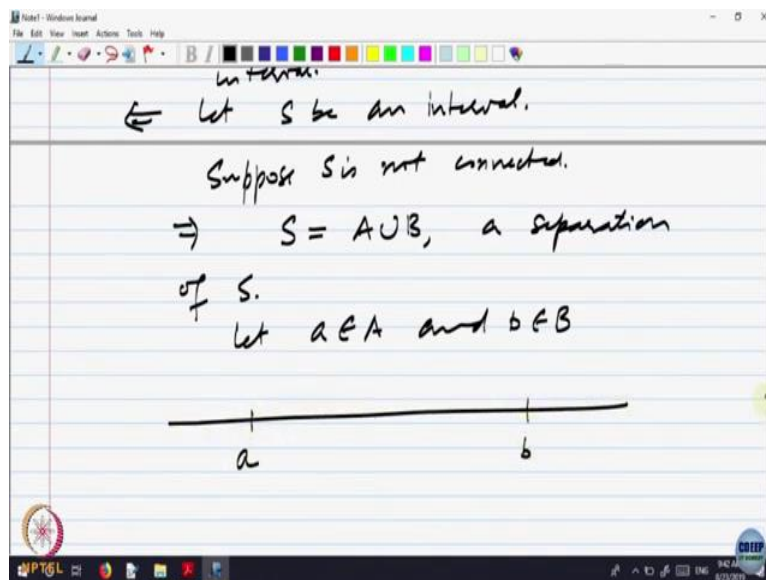 Note1 - Windows Journal
File Edit View Insert Actions Tools Help
B I
interval.
⇐ Let S be an interval.
Suppose S is not connected.
⇒ S = A ∪ B, a separation
of S.
Let a ∈ A and b ∈ B
a b
NPTEL
CDEEP
ENG